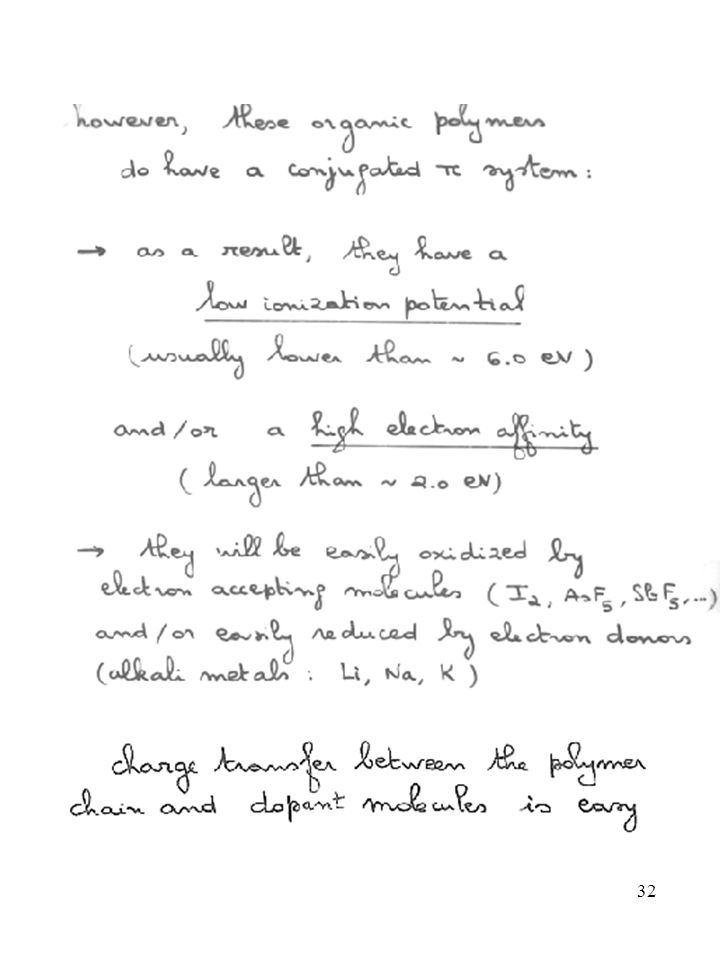 however, these organic polymers
do have a conjugated π system:
→ as a result, they have a
low ionization potential
(usually lower than ~ 6.0 eV)
and/or a high electron affinity
(larger than ~ 2.0 eV)
→ they will be easily oxidized by
electron accepting molecules (I₂, AsF₅, SbF₅,...)
and/or easily reduced by electron donors
(alkali metals: Li, Na, K)
charge transfer between the polymer
chain and dopant molecules is easy
32